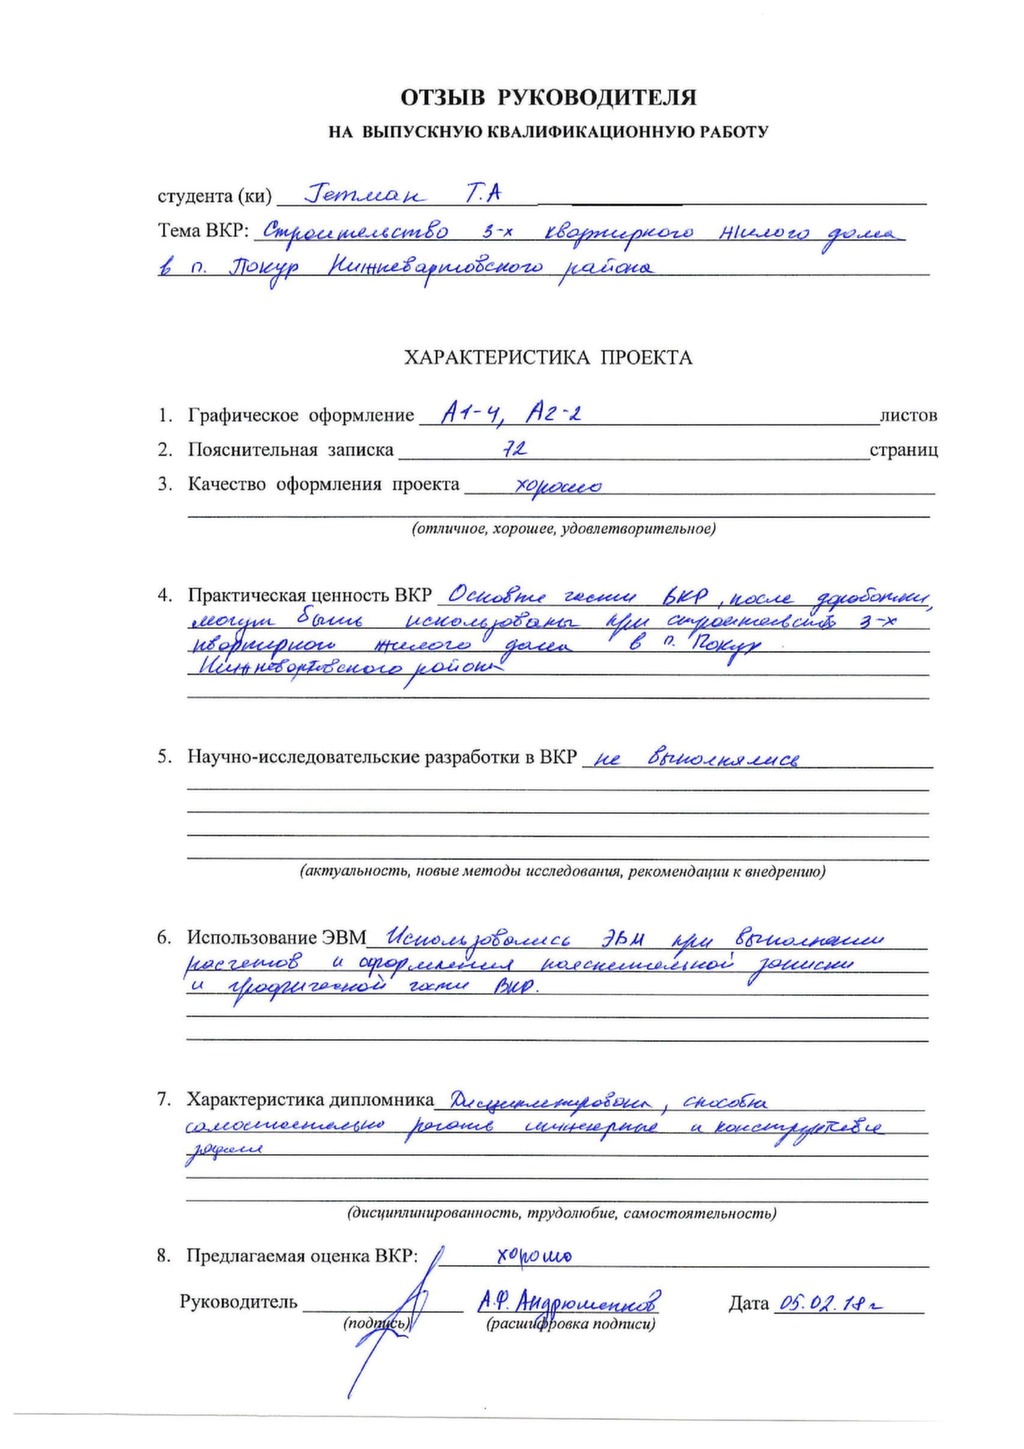 ОТЗЫВ РУКОВОДИТЕЛЯ
НА ВЫПУСКНУЮ КВАЛИФИКАЦИОННУЮ РАБОТУ
студента (ки) Гетман Т.А
Тема ВКР: Строительство 3-х квартирного жилого дома
в п. Покур Нижневартовского района
ХАРАКТЕРИСТИКА ПРОЕКТА
1. Графическое оформление А1-4, А2-2 листов
2. Пояснительная записка 72 страниц
3. Качество оформления проекта хорошо
(отличное, хорошее, удовлетворительное)
4. Практическая ценность ВКР части ВКР, после доработки,
могут быть использованы при строительстве 3-х
квартирного жилого дома в п. Покур
Нижневартовского района
5. Научно-исследовательские разработки в ВКР не выполнялись
(актуальность, новые методы исследования, рекомендации к внедрению)
6. Использование ЭВМ Использовались ЭВМ при выполнении
расчетов и оформления пояснительной записки
и графической части ВКР.
7. Характеристика дипломника Дисциплинирован, способна
самостоятельно решать инженерные и конструктивные
задачи
(дисциплинированность, трудолюбие, самостоятельность)
8. Предлагаемая оценка ВКР: хорошо
Руководитель А.Ф. Андрюшенков Дата 05.02.18 г
(подпись) (расшифровка подписи)